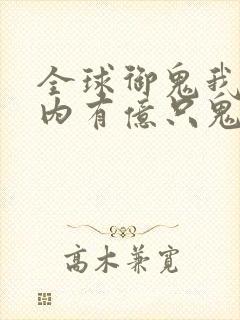 全球御鬼我
内有億只鬼
高木兼寛